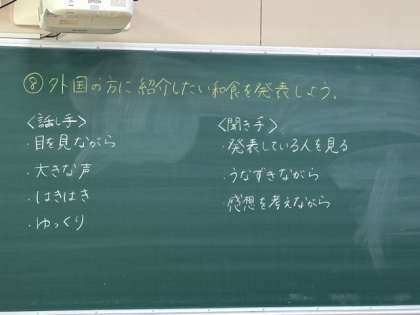 ⑧外国の方に紹介したい和食を発表しよう。
〈話し手〉
・目を見ながら
・大きな声
・はきはき
・ゆっくり
〈聞き手〉
・発表している人を見る
・うなずきながら
・感想を考えながら